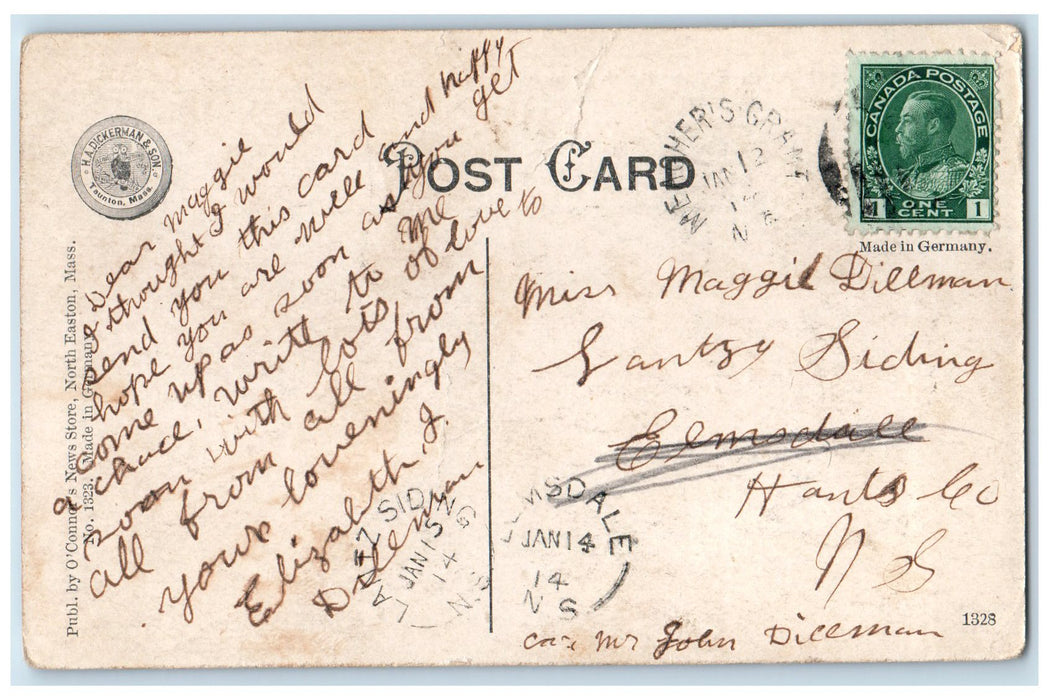 POST CARD
H.A. DICKERMAN & SON.
Taunton, Mass.
Publ. by O'Connor's News Store, North Easton, Mass.
No. 1323. Made in Germany
Dear Maggie
I thought I would
send you this card
hope you are well and happy
come up as soon as you get
a chace, write to me
soon with lots of love to
all from all from
yours loveningly
Elizabeth J.
Dillman
CANADA POSTAGE
ONE CENT
1 1
Made in Germany.
JAN 12
Miss Maggie Dillman
Lantzy Siding
Elmsdale
Hants Co
N S
car Mr John Dillman
1328
LANTZ SIDING
JAN 15
14
N.S
ELMSDALE
JAN 14
14
N S